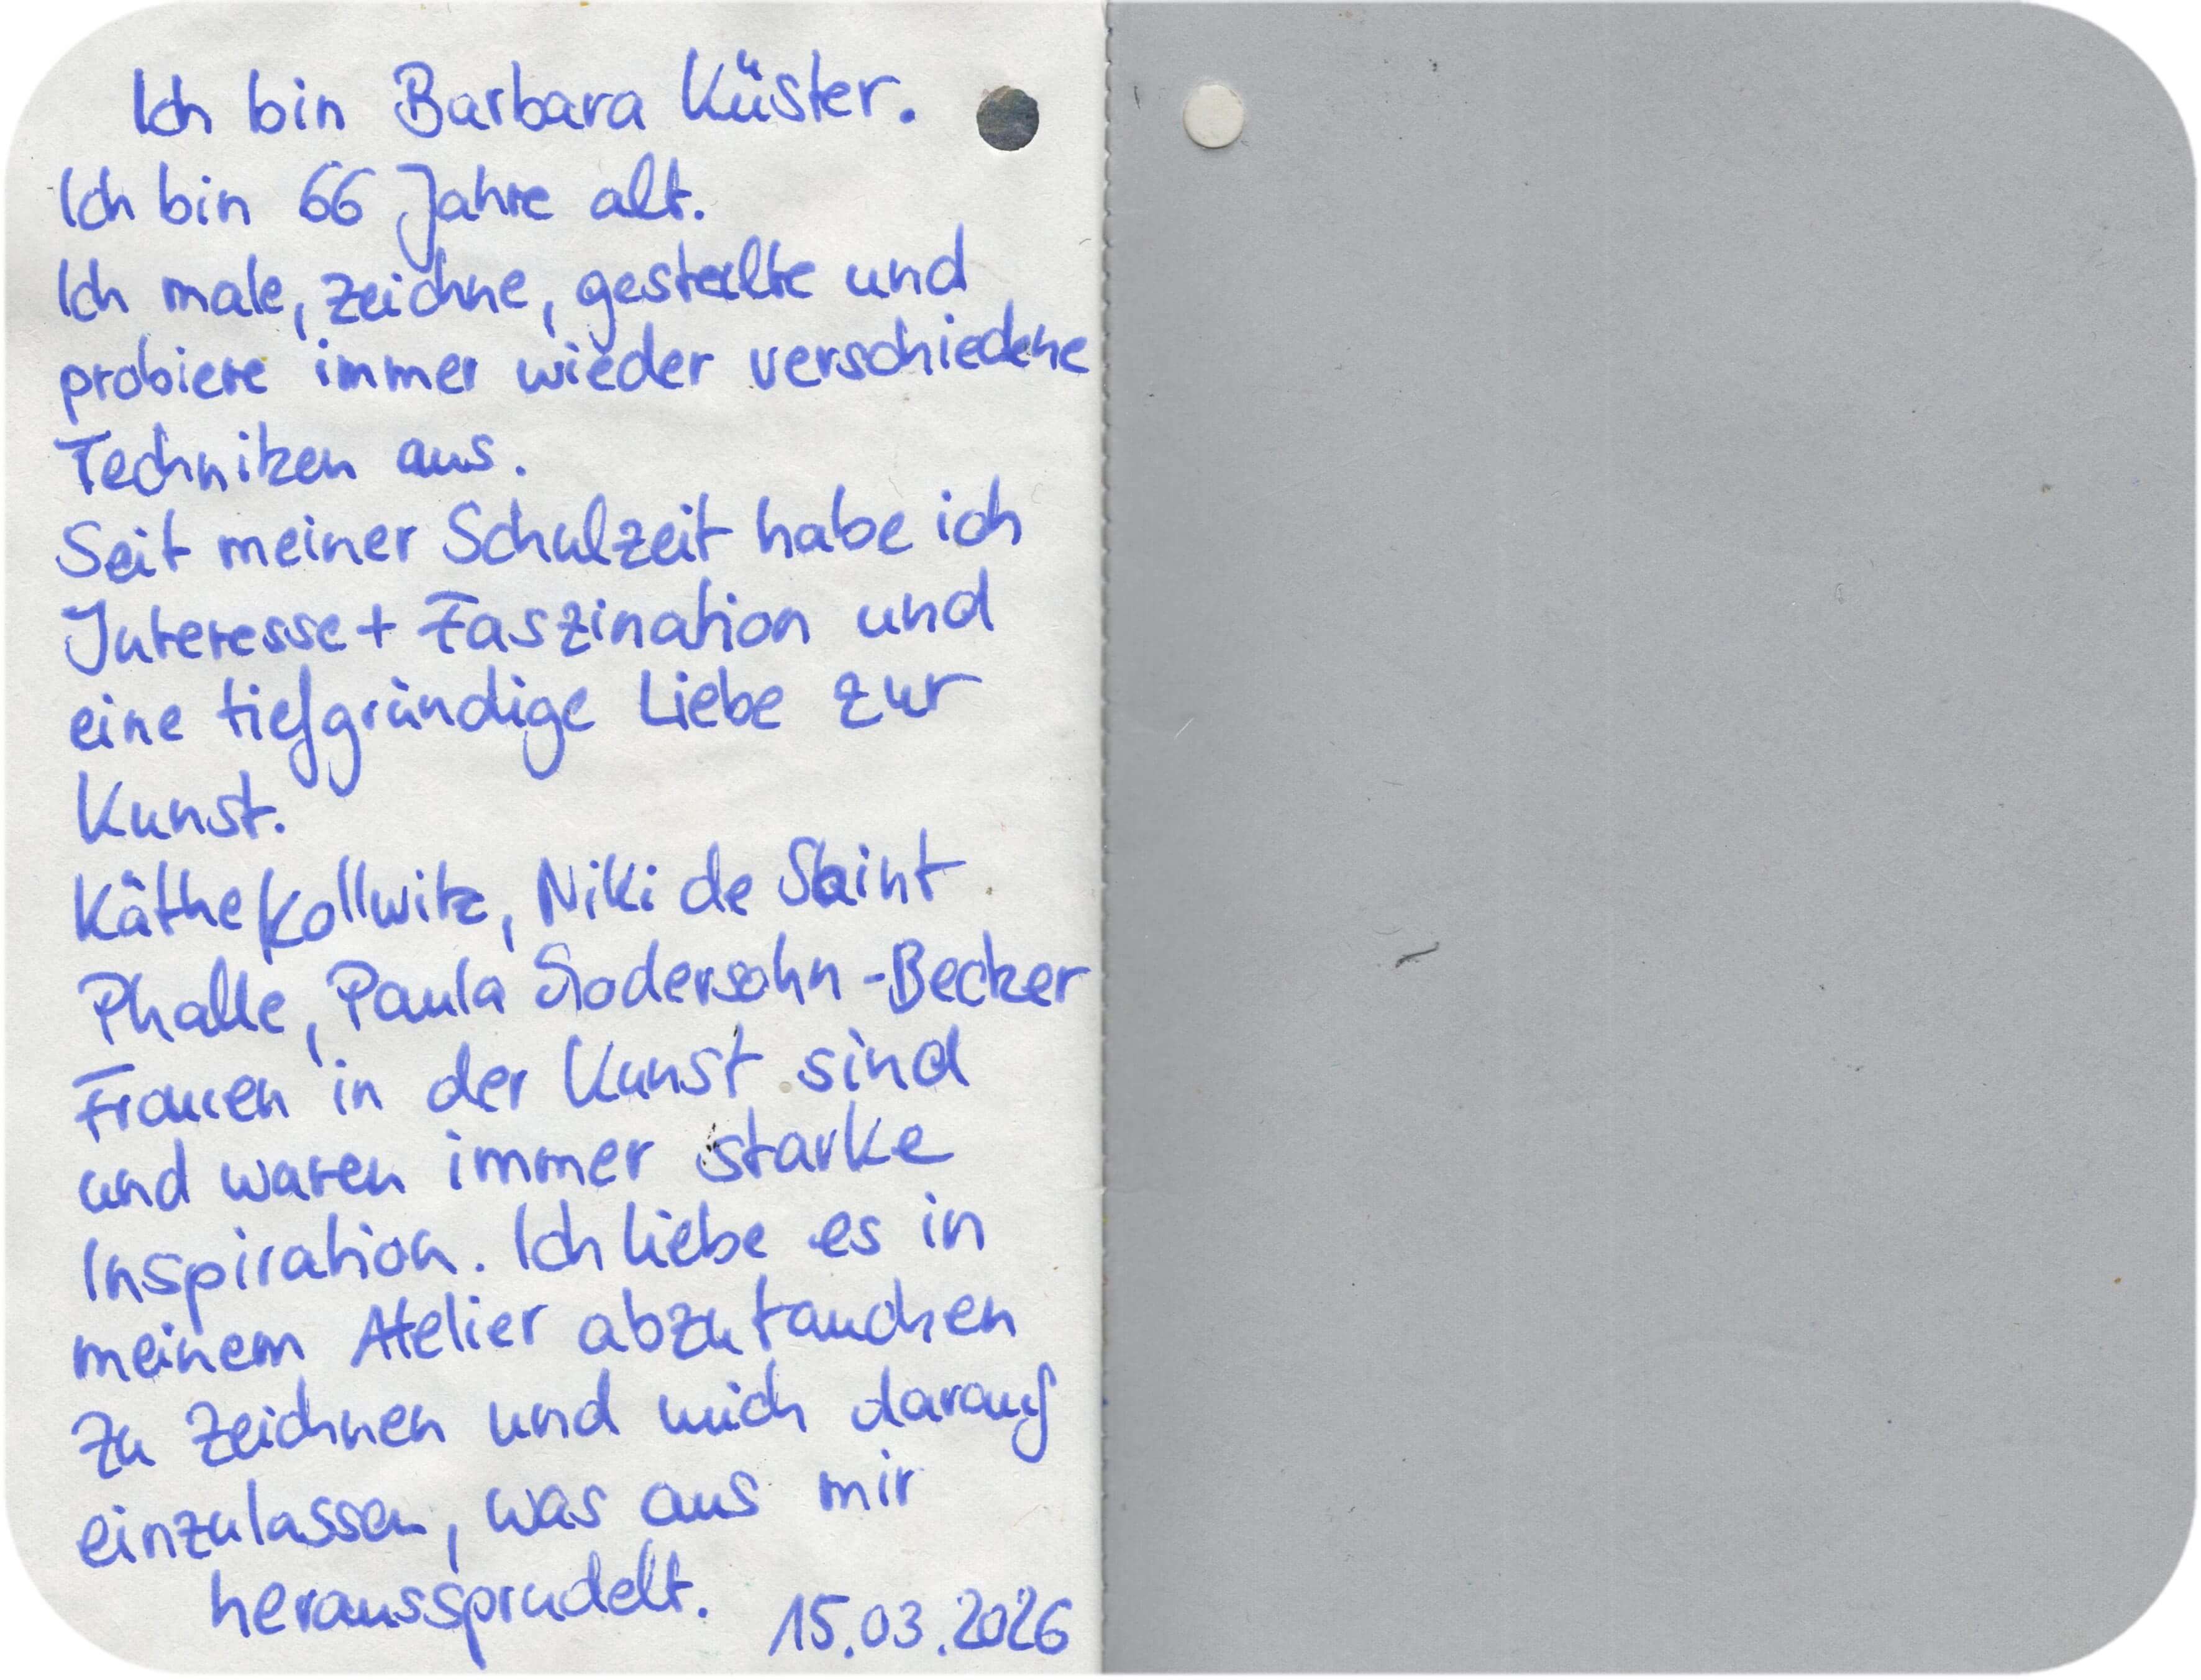 Ich bin Barbara Küster.
Ich bin 66 Jahre alt.
Ich male, zeichne, gestalte und
probiere immer wieder verschiedene
Techniken aus.
Seit meiner Schulzeit habe ich
Interesse + Faszination und
eine tiefgründige Liebe zur
Kunst.
Käthe Kollwitz, Niki de Saint
Phalle, Paula Modersohn-Becker
Frauen in der Kunst sind
und waren immer starke
Inspiration. Ich liebe es in
meinem Atelier abzutauchen
zu zeichnen und mich darauf
einzulassen, was aus mir
heraussprudelt. 15.03.2026